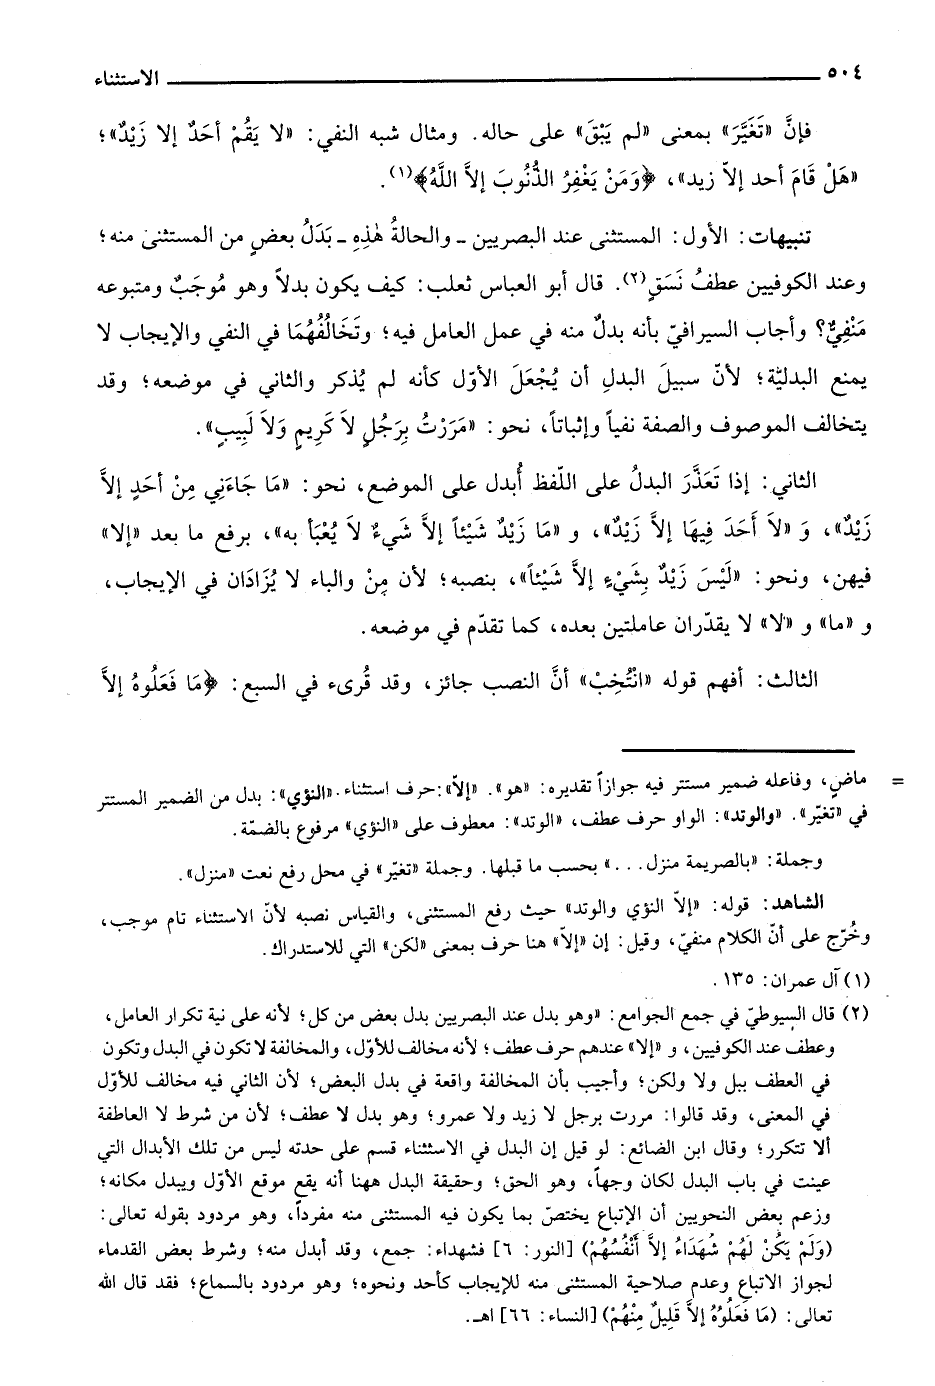 ٥٠٤ الاستثناء
فإنَّ «تَغَيَّرَ» بمعنى «لم يَبْقَ» على حاله. ومثال شبه النفي: «لا يَقُمْ أحَدٌ إلا زَيْدٌ»؛
«هَلْ قَامَ أحد إلاّ زيد»، ﴿وَمَنْ يَغْفِرُ الذُّنُوبَ إلاَّ اللَّهُ﴾(١).
تنبيهات: الأول: المستثنى عند البصريين ـ والحالةُ هٰذِهِ ـ بَدَلُ بعضٍ من المستثنى منه؛
وعند الكوفيين عطفُ نَسَقٍ(٢). قال أبو العباس ثعلب: كيف يكون بدلاً وهو مُوجَبٌ ومتبوعه
مَنْفِيٌّ؟ وأجاب السيرافيّ بأنه بدلٌ منه في عمل العامل فيه؛ وتَخَالُفُهُمَا في النفي والإيجاب لا
يمنع البدليّة؛ لأنّ سبيلَ البدلِ أن يُجْعَلَ الأوّل كأنه لم يُذكر والثاني في موضعه؛ وقد
يتخالف الموصوف والصفة نفياً وإثباتاً، نحو: «مَرَرْتُ بِرَجُلٍ لاَ كَرِيمٍ وَلاَ لَبِيبٍ».
الثاني: إذا تَعَذَّرَ البدلُ على اللّفظ أُبدل على الموضع، نحو: «مَا جَاءَنِي مِنْ أحَدٍ إلاَّ
زَيْدٌ»، وَ «لاَ أَحَدَ فِيهَا إلاَّ زَيْدٌ»، و «مَا زَيْدٌ شَيْئاً إلاَّ شَيءٌ لاَ يُعْبَأ به»، برفع ما بعد «إلا»
فيهن، ونحو: «لَيْسَ زَيْدٌ بِشَيْءٍ إلاَّ شَيْئاً»، بنصبه؛ لأن مِنْ والباء لا يُزَادَان في الإيجاب،
و «ما» و «لا» لا يقدّران عاملتين بعده، كما تقدّم في موضعه.
الثالث: أفهم قوله «انْتُخِبْ» أنَّ النصب جائز، وقد قُرىء في السبع: ﴿مَا فَعَلُوهُ إلاَّ
= ماضٍ، وفاعله ضمير مستتر فيه جوازاً تقديره: «هو». «إلاّ»: حرف استثناء. «النؤي»: بدل من الضمير المستتر
في «تغيّر». «والوتد»: الواو حرف عطف، «الوتد»: معطوف على «النؤي» مرفوع بالضمّة.
وجملة: «بالصريمة منزل...» بحسب ما قبلها. وجملة «تغيّر» في محل رفع نعت «منزل».
الشاهد: قوله: «إلاّ النؤي والوتد» حيث رفع المستثنى، والقياس نصبه لأنّ الاستثناء تام موجب،
وخُرّج على أنّ الكلام منفيّ، وقيل: إن «إلاّ» هنا حرف بمعنى «لكن» التي للاستدراك.
(١) آل عمران: ١٣٥.
(٢) قال السيوطيّ في جمع الجوامع: «وهو بدل عند البصريين بدل بعض من كل؛ لأنه على نية تكرار العامل،
وعطف عند الكوفيين، و «إلا» عندهم حرف عطف؛ لأنه مخالف للأوّل، والمخالفة لا تكون في البدل وتكون
في العطف ببل ولا ولكن؛ وأجيب بأن المخالفة واقعة في بدل البعض؛ لأن الثاني فيه مخالف للأوّل
في المعنى، وقد قالوا: مررت برجل لا زيد ولا عمرو؛ وهو بدل لا عطف؛ لأن من شرط لا العاطفة
ألا تتكرر؛ وقال ابن الضائع: لو قيل إن البدل في الاستثناء قسم على حدته ليس من تلك الأبدال التي
عينت في باب البدل لكان وجهاً، وهو الحق؛ وحقيقة البدل ههنا أنه يقع موقع الأوّل ويبدل مكانه؛
وزعم بعض النحويين أن الإتباع يختصّ بما يكون فيه المستثنى منه مفرداً، وهو مردود بقوله تعالى:
(وَلَمْ يَكُنْ لَهُمْ شُهَدَاءُ إلاَّ أَنْفُسُهُمْ) [النور: ٦] فشهداء: جمع، وقد أبدل منه؛ وشرط بعض القدماء
لجواز الاتباع وعدم صلاحية المستثنى منه للإيجاب كأحد ونحوه؛ وهو مردود بالسماع؛ فقد قال الله
تعالى: (مَا فَعَلُوُهُ إلاَّ قَلِيلٌ مِنْهُمْ) [النساء: ٦٦] اهـ.